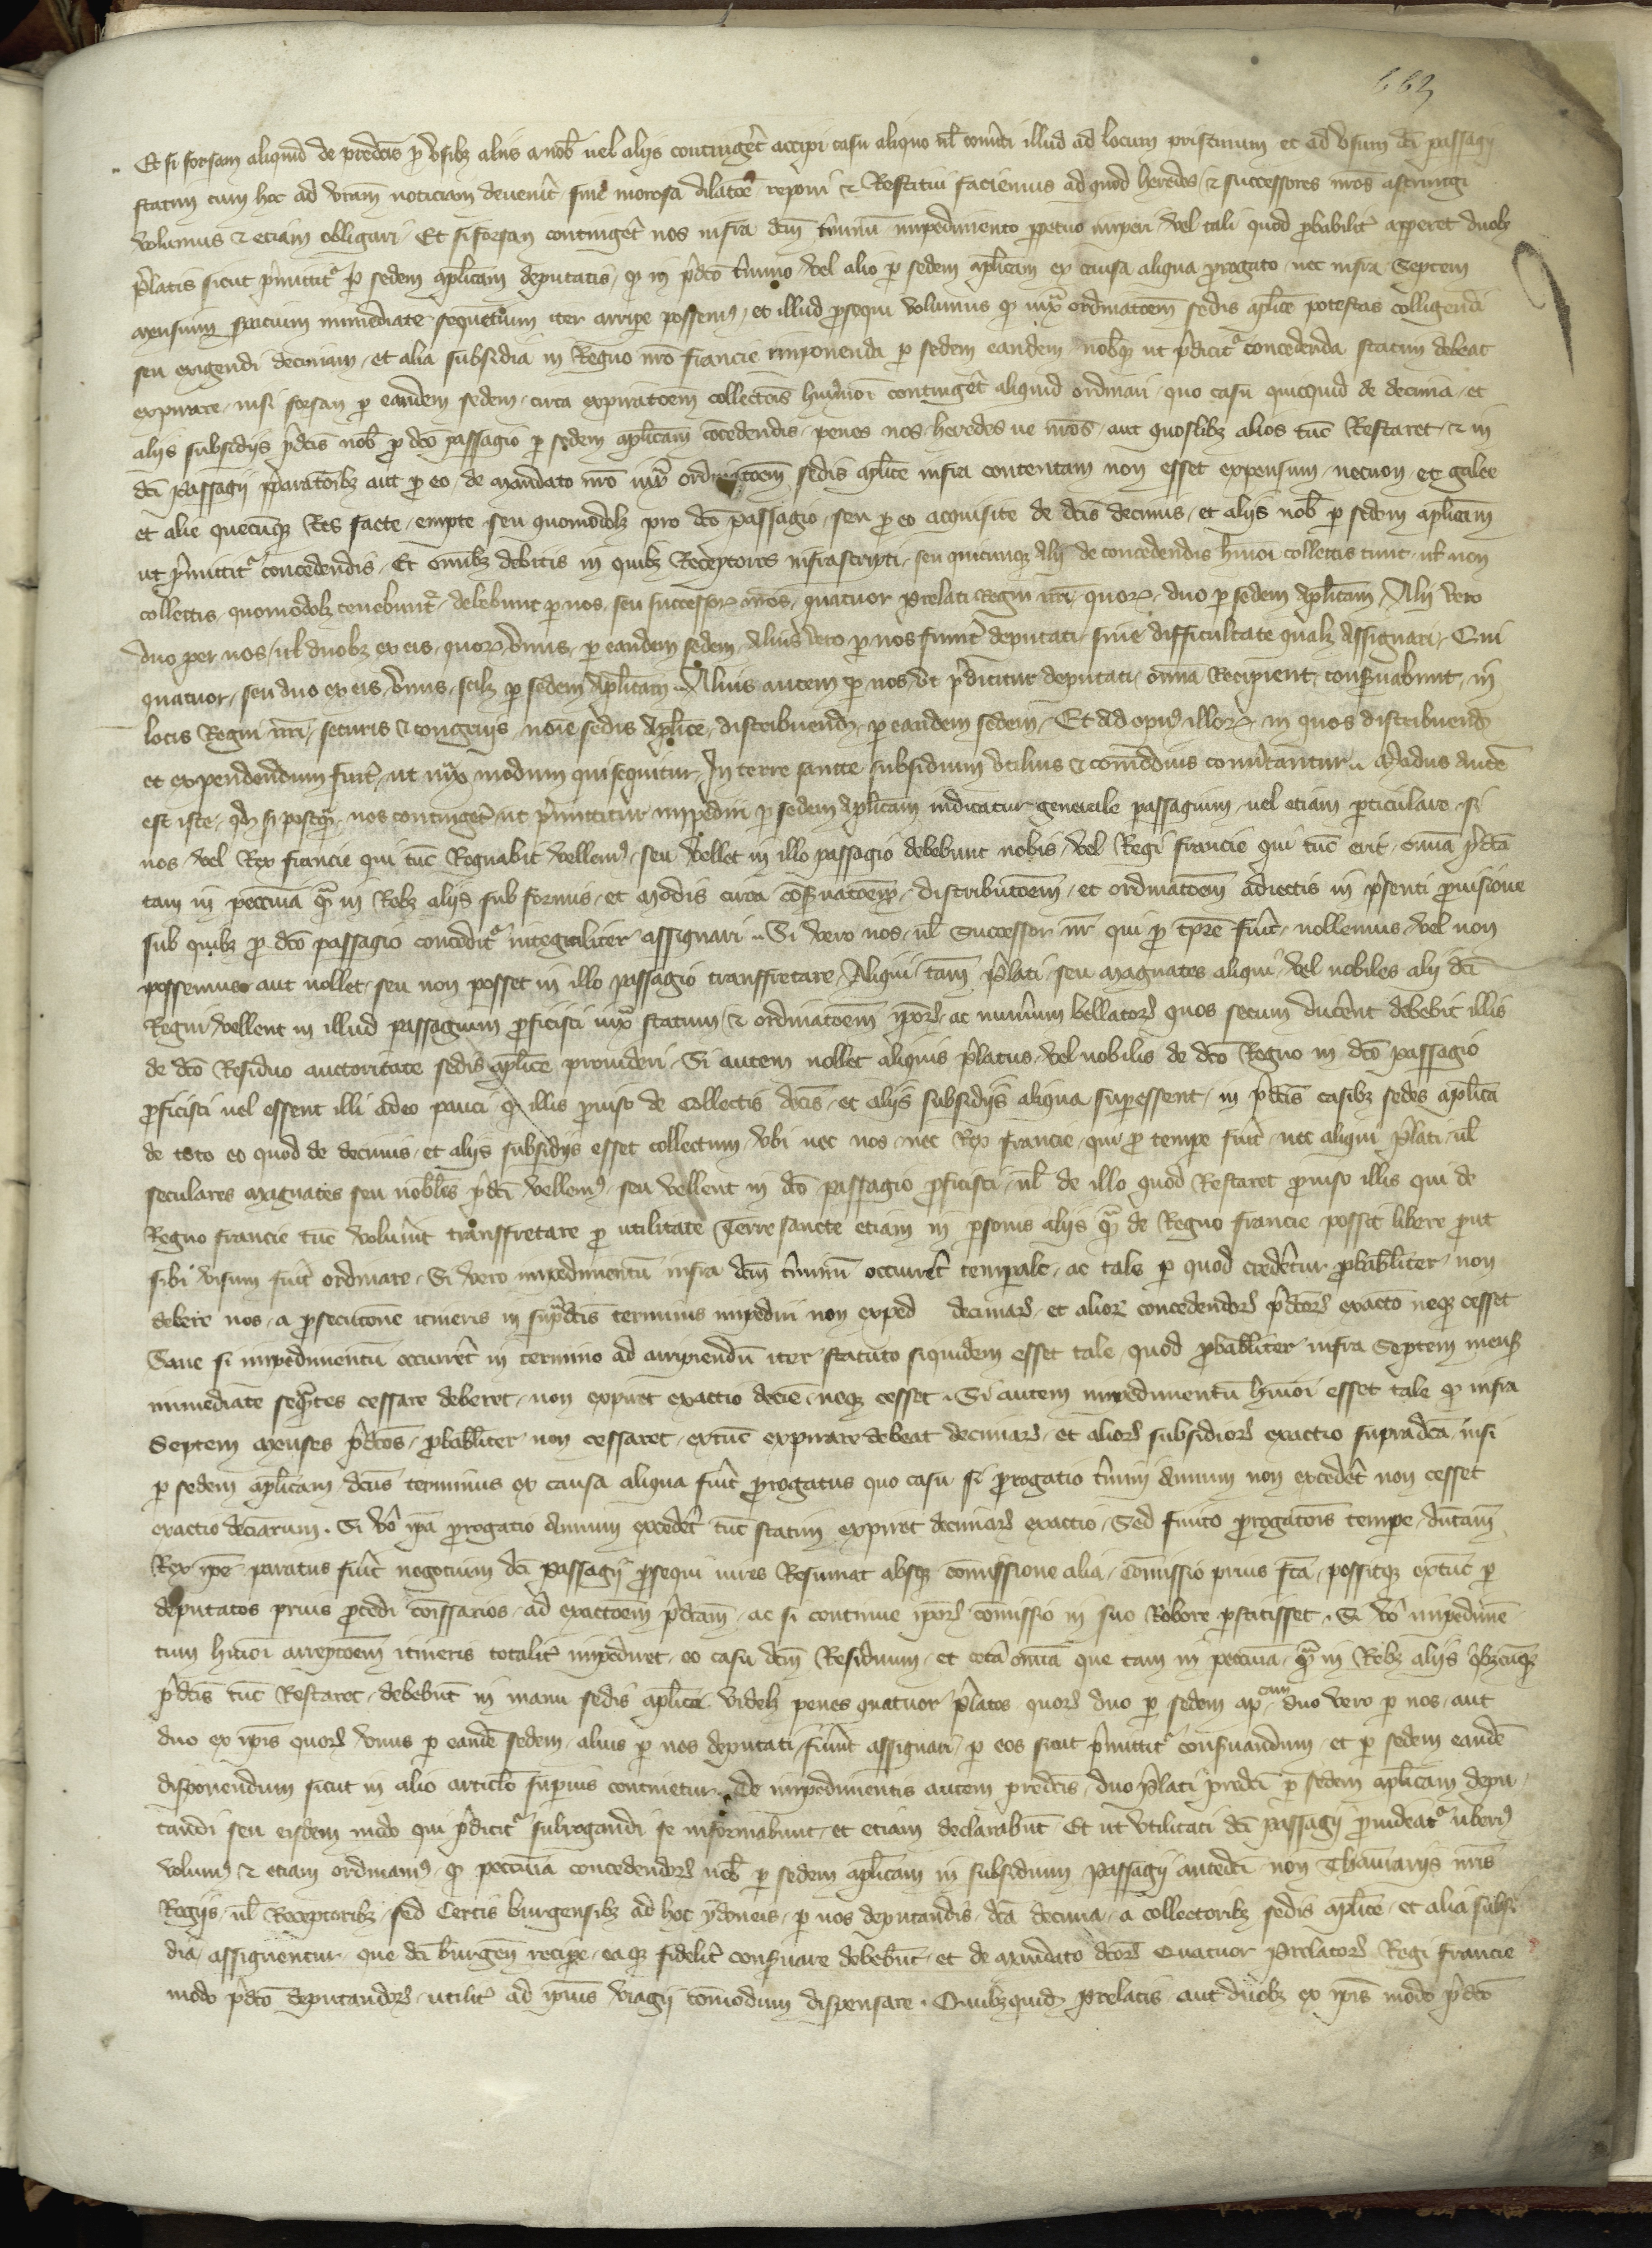 Et si forsam aliquid de predcis p vsibz aliis a nob uel alijs continget accipi casu aliquo ul comitti illud ad locum pristinum et ad vsum dci passagij
statim cum hoc ad nram noticiam deuenit sine morosa dilatoe reponi et Restitui faciemus ad quod heredes et successores nros astringi
volumus et etiam obligari Et si forsan contingat nos infra dcm tminu impedimento ppetuo impediri vel tali quod pbabilit apperet duobz
platis sicut pmittit p sedem aplicam deputatis q in pdco tmino vel alio p sedem aplicam ex causa aliqua progato nec infra Septem
mensium spacium immediate sequetium iter arripe possem et illud psequi volumus q iux ordinatoem sedis aplice potestas colligendi
seu exigendi decimam et alia subsidia in Regno nro francie imponenda p sedem eandem nobqz ut pdicit concedenda statim debeat
expirare nisi forsan p eandem sedem circa expiratoem collectois huiusmoi continget aliquid ordinari quo casu quicquid de decima et
alijs subsidijs pdcis nob p dco passagio p sedem aplicam cocedendis penes nos heredes ue nros aut quoslibz alios tuc Restaret et in
dci passagij pparatoibz aut p eo de mandato nro iux ordinatoem sedis aplice infra contentam non esset expensum necnon et galee
et alie quecuqz Res facte empte seu quomodolz pro dco passagio seu p eo acquisite de dcis decimis et alijs nob p sedem aplicam
ut pmittit concedendis Et omibz debitis in quibz Receptores infrascripti seu quicunqz alij de concedendis hmoi collectis tunc ul non
collectis quomodolz tenebunt debebunt p nos seu successor nros quatuor prelati Regni nri quor duo p sedem aplicam Alij vero
duo per nos ul duobz ex eis quor vnus p eandem sedem alius vero p nos fuint deputati sine difficultate qualz assignari Qui
quatuor seu duo ex eis vnus scilz p sedem aplicam Alius autem p nos vt pdicitur deputati oma Recipient conseruabunt in
locis Regni nri securis et congruis noie sedis aplice distribuendz p eandem sedem Et ad opus illorz in quos distribuend
et expendendum fuit ut iux modum qui sequitur In terre sancte subsidium vtilius et comodius comutantur Modus aute
est iste qd si postqz nos continget ut pmittitur impediri p sedem aplicam indicatur generale passagium uel etiam pticulare si
nos vel Rex francie qui tuc Regnabit vellem seu vellet in illo passagio debebunt nobis vel Regi francie qui tuc erit oma pdca
tam in peccunia qz in Rebz alijs sub formis et modis circa coseruatoem distributoem et ordinatoem adiectis in psenti puisione
sub quibz p dco passagio concedit integraliter assignari Si vero nos ul Successor nr qui p tpre fuit nollemus vel non
possemus aut nollet seu non posset in illo passagio transfretare Aliqui tam plati seu magnates aliqui vel nobiles alij dci
Regni vellent in illud passagium pficisci iux statum et ordinatoem ipor ac numum bellator quos secum ducent debebit illis
de dco Residuo auctoritate sedis aplice prouideri Si autem nollet aliquis platus vel nobilis de dco Regno in dco passagio
pficisci uel essent illi adeo pauci q illis puiso de Collectis dcis et alijs subsidijs aliqua supessent in pdcis casibz sedes aplica
de toto eo quod de decimis et alijs subsidijs esset collectum vbi nec nos nec Rex francie qui p tempe fuit nec aliqui plati ul
seculares magnates seu nobiles pdci vellem seu vellent in dco passagio pficisci ul de illo quod Restaret puiso illis qui de
Regno francie tuc volunt transfretare p utilitate Terre sancte etiam in psonis alijs qz de Regno francie possit libere put
sibi visum fuit ordinare Si vero impedimentu infra dcm tminu occurret temporale ac tale p quod credetur pbabiliter non
debere nos a psecutione itineris in supdcis terminis impediri non exped decimar et alior concedendor pdcor exacto neqz cesset
Sane si impedimentu occurret in termino ad arripiendu iter statuto siquidem esset tale quod pbabiliter infra Septem mens
immediate seqntes cessare deberet non expiret exactio decie neqz cesset Si autem impedimentu hmoi esset tale q infra
Septem menses pdcos pbabiliter non cessaret extuc expirare debeat decimar et alior subsidior exactio supradca nisi
p sedem aplicam dcus terminus ex causa aliqua fuit prorogatus quo casu si prorogatio tmini annum non excedet non cesset
exactio deciarum Si vo ipa prorogatio annum excedet tuc statim expiret decimar exactio Sed finito prorogatois tempe dutam
Rex ipe paratus fuit negocium dci Passagij psequi uires Resumat absqz comissione alia comissio prius fca possitqz extuc p
deputatos prius pcedi comissarios ad exactoem pdcam ac si continue ipor comissio in suo Robore pstitisset Si vo impedime
tum hmoi arreptoem itineris totalit impediret eo casu dcm Residuum et cetea omia que tam in peccunia qz in Rebz alijs qbzcuqz
pdcis tuc Restaret debebut in manu sedis aplice videlz penes quatuor platos quor duo p sedem apcam duo vero p nos aut
duo ex ipis quor vnus p eande sedem alius p nos deputati fuint assignari p eos sicut pmittit conseruandum et p sedem eande
disponendum sicut in alio articlo supius continetur De impedimentis autem predcis duo plati predci p sedem aplicam depu
tandi seu eisdem modo qui pdicit subrogandi se informabunt et etiam declarabut Et ut vtilitati dci passagij puideat uberi
volum et etiam ordinam q peccunia concedendor nob p sedem aplicam in subsidium Passagij antedci non Thesaurarijs nris
Regijs ul Receptoribz sed Certis burgensibz ad hoc ydoneis p nos deputandis dca decima a collectoribz sedis aplice et alia subsi
dia assignentur que dci burgen recipe eaqz fidelit conseruare debebut et de mandato dcor Quatuor Prelator Regi francie
modo pdco deputandor utilit ad ipius viagij comodum dispensare Quibzquidz prelatis aut duobz ex ipis modo pdco